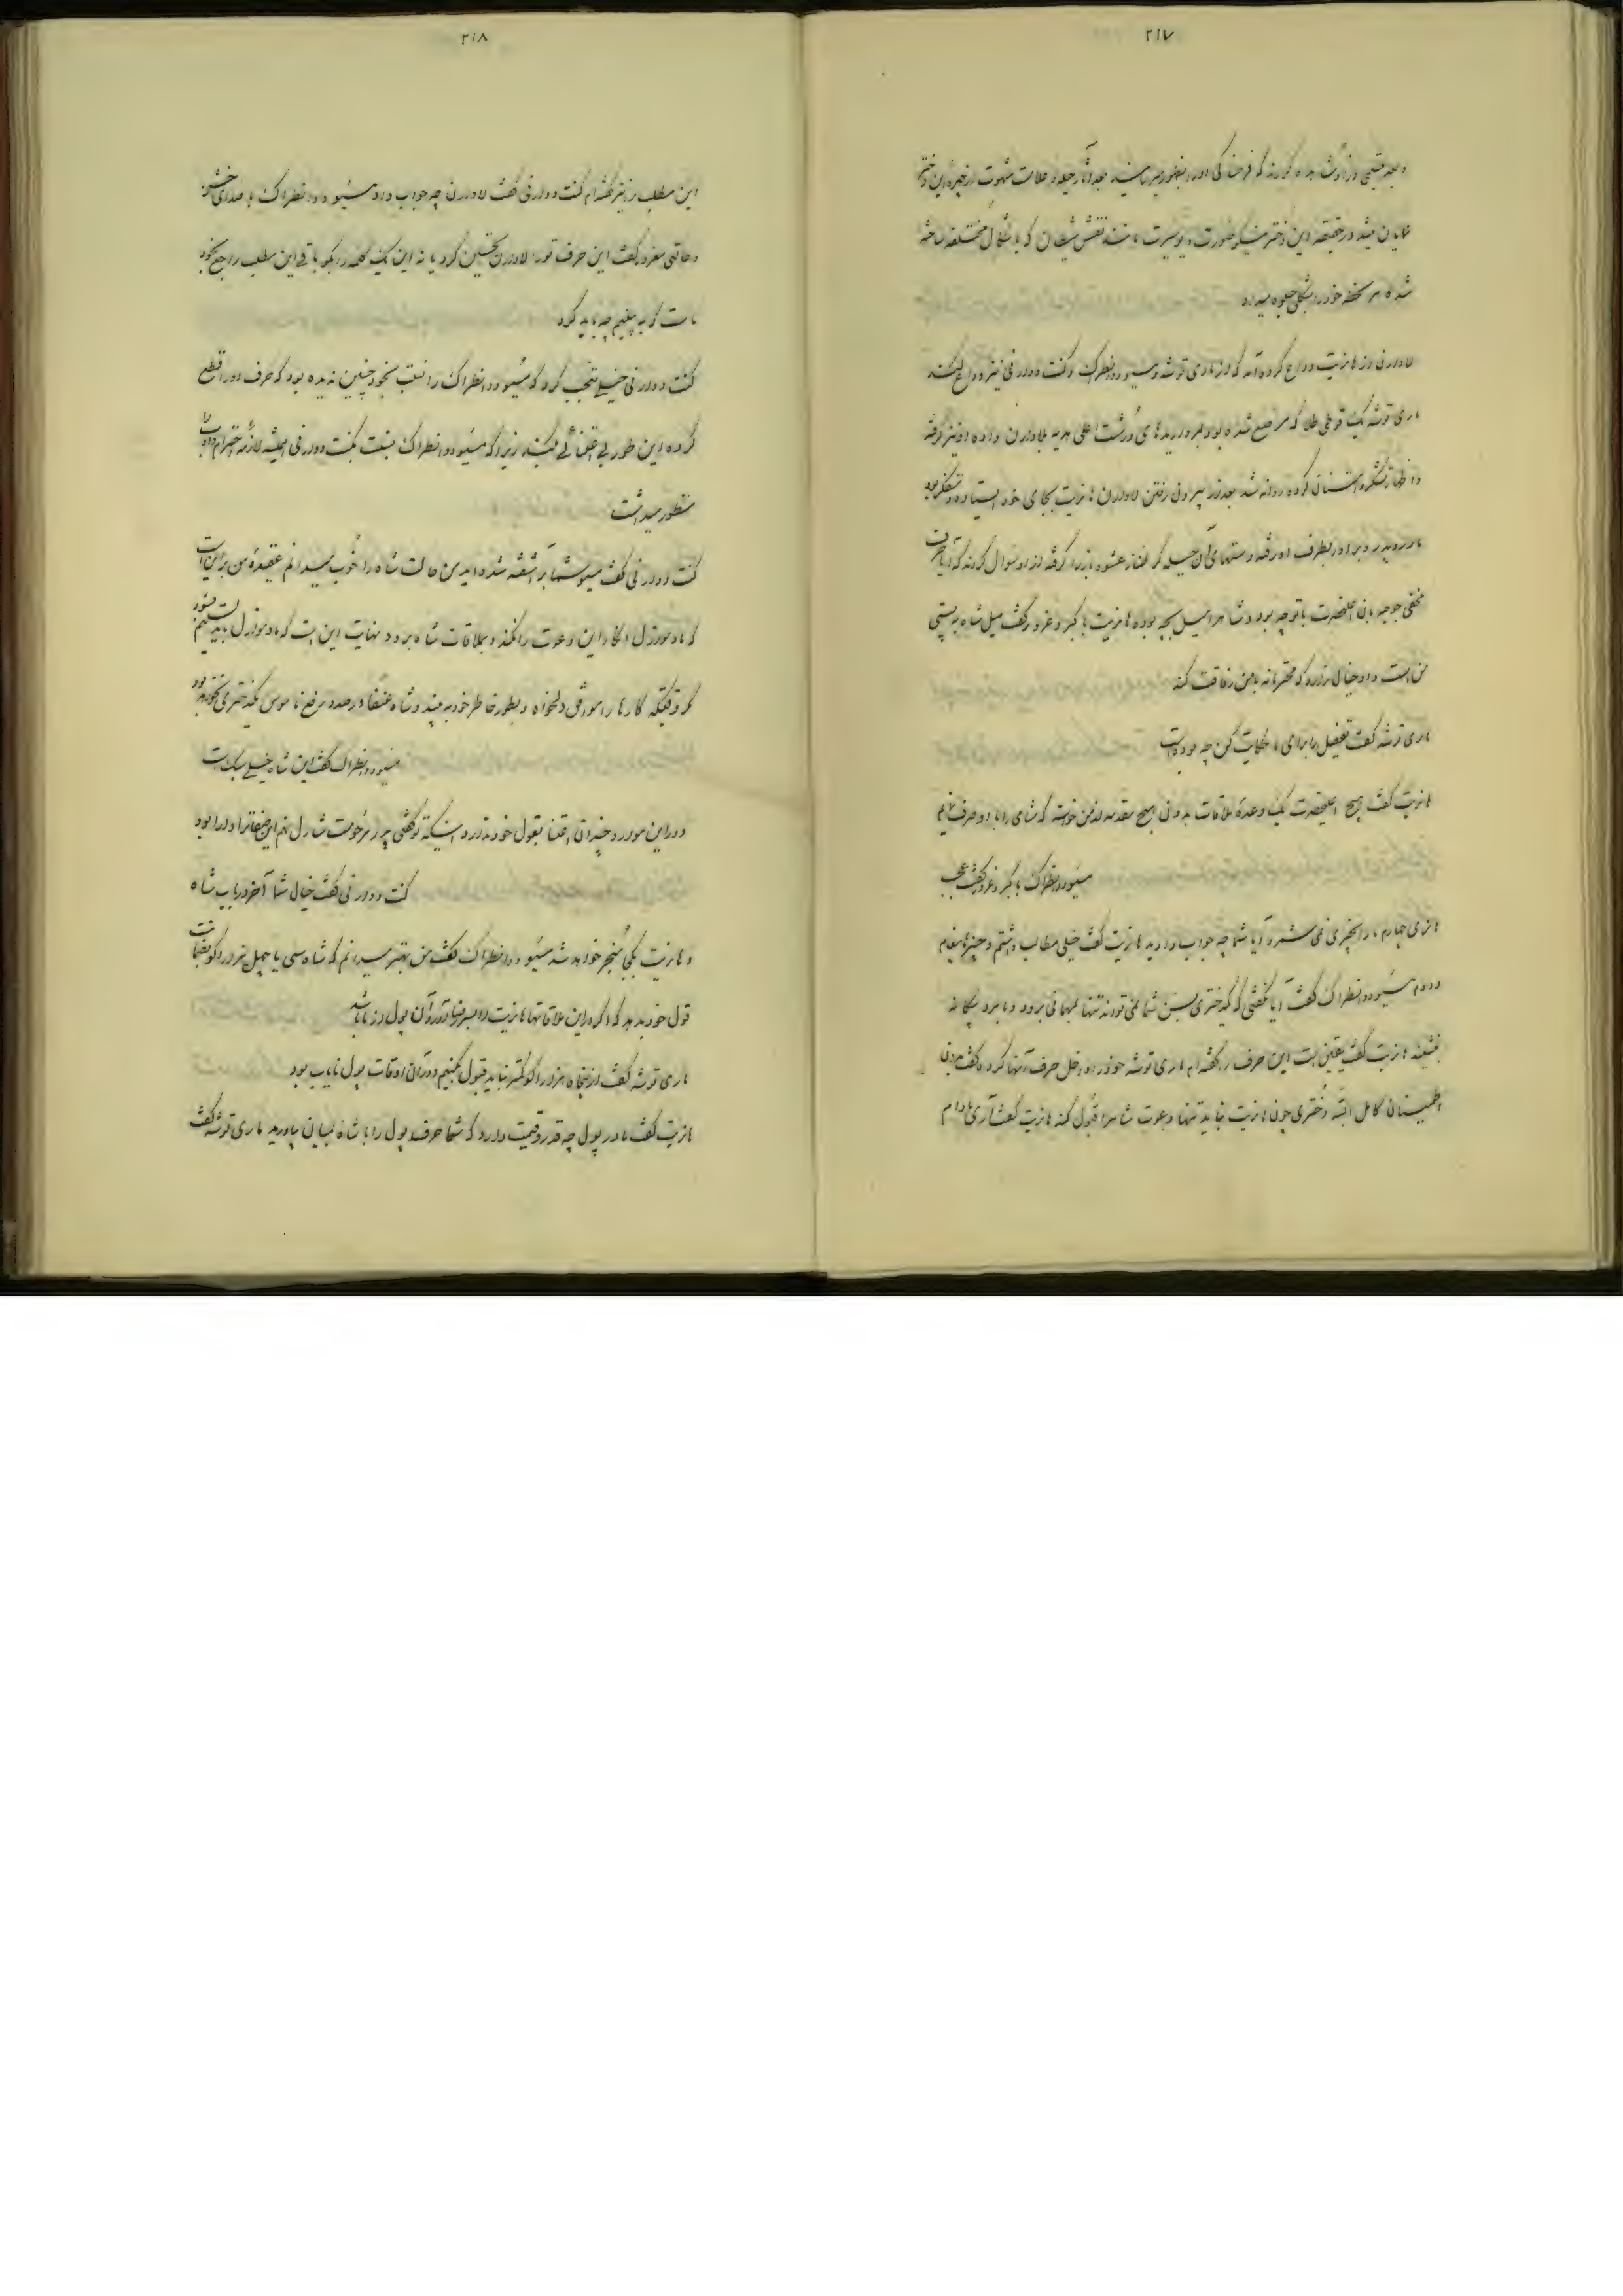 ۲۱۷
نمایان میشد در حقیقة این دختر نیکو صورت دیو سیرت مانند نقش شیطان که باشکال مختلفه ساخته
شده هر لحظه خود را بشکلی جلوه میداد
لاوارن از هانریت وداع کرده آمد که از ماری توشه و مسیو دانطراک و کنت دوارنی نیز وداع کند
ماری توشه یک قوطی طلا که مرصع شده بود بمرواریدهای درشت اعلی هدیه بلاوارن داده او نیز گرفته
و اظهار تشکر و امتنان کرده روانه شد بعد از بیرون رفتن لاوارن هانریت بجای خود ایستاده متفکر بود
مادر و پدر و برادر بطرف او رفته دستهای آن حیله گر طناز عشوه باز را گرفته از او سوال کردند که آیا حرف
مخفی جوجه بان اعلیحضرت با توجه بود و شاهرا میل بچه بوده هانریت با کبر و غرور گفت میل شاه به پستی
من است و او خیال ندارد که محترمانه با من رفاقت کند
ماری توشه گفت تفصیل را برای ما حکایت کن چه بوده است
هانریت گفت هیچ اعلیحضرت یک وعدهٔ ملاقات بدون هیچ مقدمه از من خواسته که شامی را با او صرف نمایم
مسیو دانطراک با کبر و غرور گفت عجب
هانری چهارم ما را بچیزی نمی شمرد آیا شما چه جواب دادید هانریت گفت خیلی مطالب داشتم و چیزها پیغام
دادم مسیو دانطراک گفت آیا گفتی که دختری بسن شما نمی تواند تنها بمهمانی برود و با مرد بیگانه
بنشیند هانریت گفت یقین است این حرف را گفته ام ماری توشه خود را داخل حرف آنها کرده گفت بدون
اطمینان کامل البته دختری چون هانریت نباید تنها دعوت شاه را قبول کند هانریت گفت آری مادام
۲۱۸
این مطلب را نیز گفته ام کنت دوارنی گفت لاوارن چه جواب داد مسیو دانطراک با صدای خشن
و حالتی مغرور گفت این حرف تو را لاوارن تحسین کرد یا نه این یک کلمه را بگو باقی این مطلب راجع بخود
ماست که به بینیم چه باید کرد
کنت دوارنی خیلی تعجب کرد که مسیو دانطراک را نسبت بخود چنین ندیده بود که حرف او را قطع
کرده این طور بی اعتنائی بکند زیرا که مسیو دانطراک نسبت بکنت دوارنی همیشه لازمهٔ احترام را
منظور میداشت
کنت دوارنی گفت مسیو شما بر آشفته شده اید من حالت شاه را خوب میدانم عقیدهٔ من بر این است
که مادموازل انکار این دعوت را نکند و بملاقات شاه برود نهایت این است که مادموازل باید تسلیم نشود
مگر وقتیکه کارها را موافق دلخواه و بطور خاطر خود به بیند و شاه عنفا در صدد رفع ناموس دختری نخواهد بود
مسیو دانطراک گفت این شاه خیلی سبک است
و در این موارد چندان اعتنا بقول خود ندارد
کنت دوارنی گفت خیال شما آخر در باب شاه
و هانریت بکجا منجر خواهد شد مسیو دانطراک گفت من بهتر میدانم که شاه سی یا چهل هزار اکو
ماری توشه گفت از پنجاه هزار اکو کمتر نباید قبول کنیم و در آن اوقات پول نایاب بود
هانریت گفت مادر پول چه قدر و قیمت دارد که شما حرف پول را با شاه بمیان بیاورید ماری توشه گفت